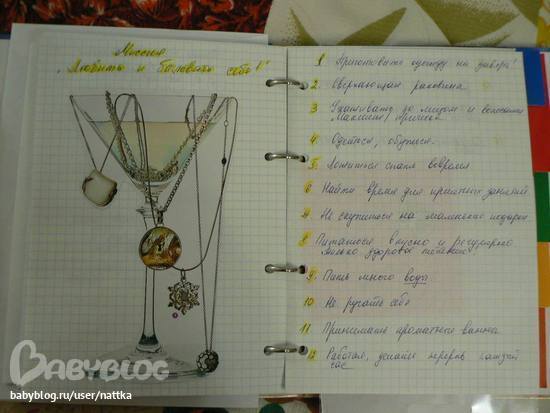 Миссия
„Любить и баловать себя!"
1 Приготовить одежду на завтра!
2. Сверкающая раковина
3 Ухаживать за лицом и волосами
4. Одеться, обуться.
5. Ложиться спать вовремя
6 Найти время для приятных занятий
7 Не скупиться на маленькие подарки
8 Питаться вкусно и регулярно
только здоровое питание
9. Пить много воды
10 Не ругать себя
11 Принимать ароматные ванны
12 Работая, делайте перерыв каждый
час
BABYBLOG
babyblog.ru/user/nattka